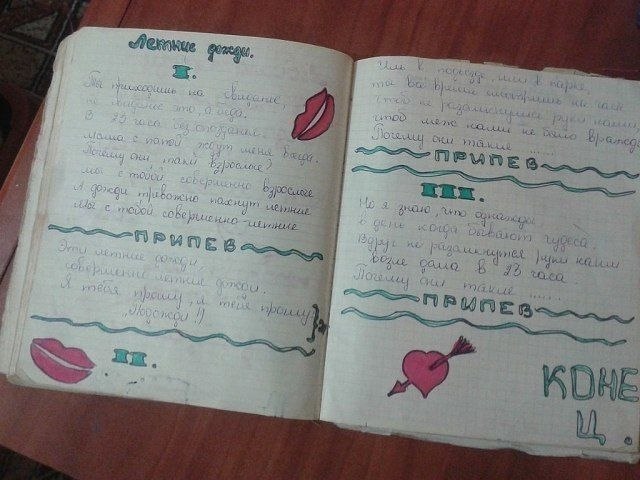 Летние дожди.
I.
Ты приходишь на свидание,
не свидание это, а беда.
В 23 часа без опоздания
Мама с папой ждут меня всегда.
Почему они, такие взрослые?
Мы с тобой совершенно взрослые
А дожди тревожно пахнут летние
Мы с тобой совершенно летние
ПРИПЕВ
Эти летние дожди,
совершенно летние дожди.
Я тебя прошу, я тебя прошу
"Подожди!"
II.
Иль в подъезде, или в парке,
ты всё время смотришь на часы
чтоб не разомкнулись руки наши,
чтоб меж нами не было вражды
Почему они такие ......
ПРИПЕВ
III.
Но я знаю, что однажды
в день когда бывают чудеса,
Вдруг не разомкнутся руки наши
возле дома в 23 часа
Почему они такие ......
ПРИПЕВ
КОНЕ
Ц.